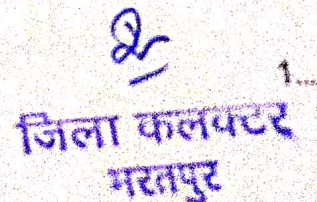 1...
जिला कलक्टर
भरतपुर